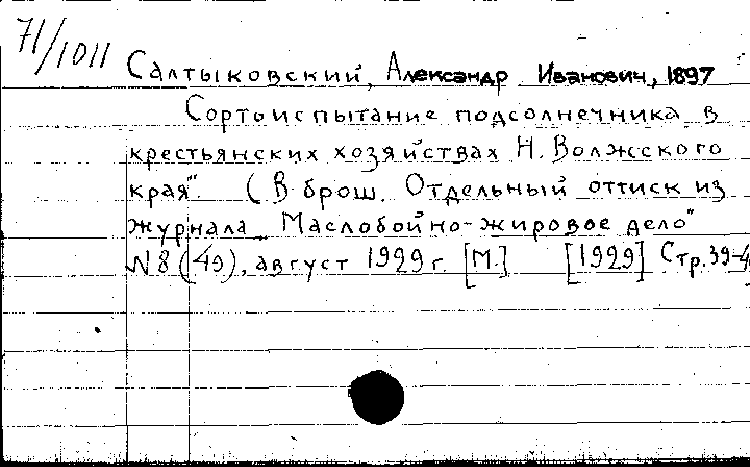 71/1011
Салтыковский, Александр Иванович, 1897
Сортоиспытание подсолнечника в
крестьянских хозяйствах Н. Волжского
края". (В брош. Отдельный оттиск из
журнала „Маслобойно-жировое дело"
N8(49), август 1929 г. [М.] [1929] Стр. 39-4